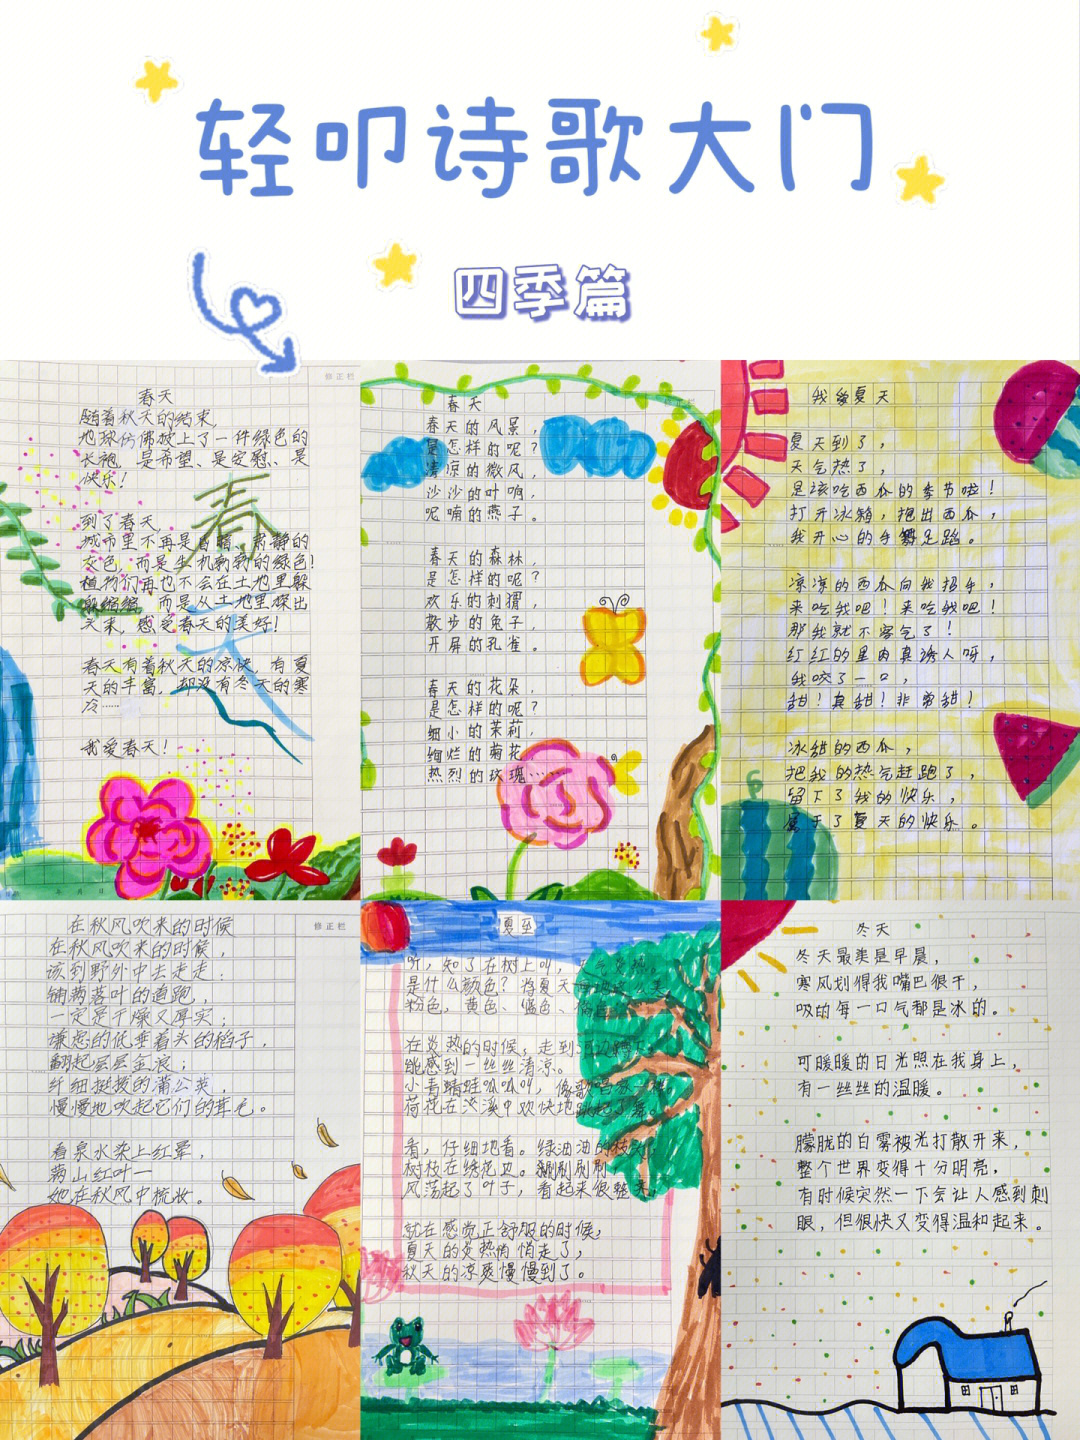 轻叩诗歌大门
四季篇
修正栏
春天
随着秋天的结束,
地球仿佛披上了一件绿色的
长袍,是希望、是安慰、是
快乐!
到了春天,
城市里不再是昏暗、肃静的
灰色,而是生机勃勃的绿色!
植物们再也不会在土地里躲
而是从土地里探出
头来,感受春天的美好!
春天有着秋天的凉快,有夏
天的丰富,却没有冬天的寒
冷……
我爱春天!
年 月 日
春天
春天的风景,
是怎样的呢?
清凉的微风,
沙沙的叶响,
呢喃的燕子。
春天的森林,
是怎样的呢?
欢乐的刺猬,
散步的兔子,
开屏的孔雀。
春天的花朵,
是怎样的呢?
细小的茉莉,
绚烂的菊花
热烈的玫瑰……
我爱夏天
夏天到了,
天气热了,
是该吃西瓜的季节啦!
打开冰箱,抱出西瓜,
我开心的手舞足蹈。
凉凉的西瓜向我招手,
来吃我吧!来吃我吧!
那我就不客气了!
红红的果肉真诱人呀,
我咬了一口,
甜!真甜!非常甜!
冰甜的西瓜,
把我的热气赶跑了,
留下了我的快乐,
属于了夏天的快乐。
在秋风吹来的时候
修正栏
在秋风吹来的时候,
该到野外中去走走:
铺满落叶的道跑,
一定是干燥又厚实;
谦虚的低垂着头的稻子,
翻起层层金浪;
纤细挺拨的蒲公英,
慢慢地吹起它们的茸毛。
看泉水染上红晕,
满山红叶一
她在秋风中梳妆。
夏至
听,知了在树上叫,天气炎热。
是什么颜色?将夏天
粉色,黄色、
在炎热的时候,走到
能感到一丝丝清凉。
小青蜻蛙呱呱叫,像歌唱家一样
荷花在
看,仔细地看。绿油油的
树枝在
风荡起了叶子,看起来很整
就在感觉正舒服的时候,
夏天的炎热悄悄走了,
秋天的凉爽慢慢到了。
冬天
冬天最美是早晨,
寒风划得我嘴巴很干,
吸的每一口气都是冰的。
可暖暖的日光照在我身上,
有一丝丝的温暖。
朦胧的白雾被光打散开来,
整个世界变得十分明亮,
有时候突然一下会让人感到刺
眼,但很快又变得温和起来。